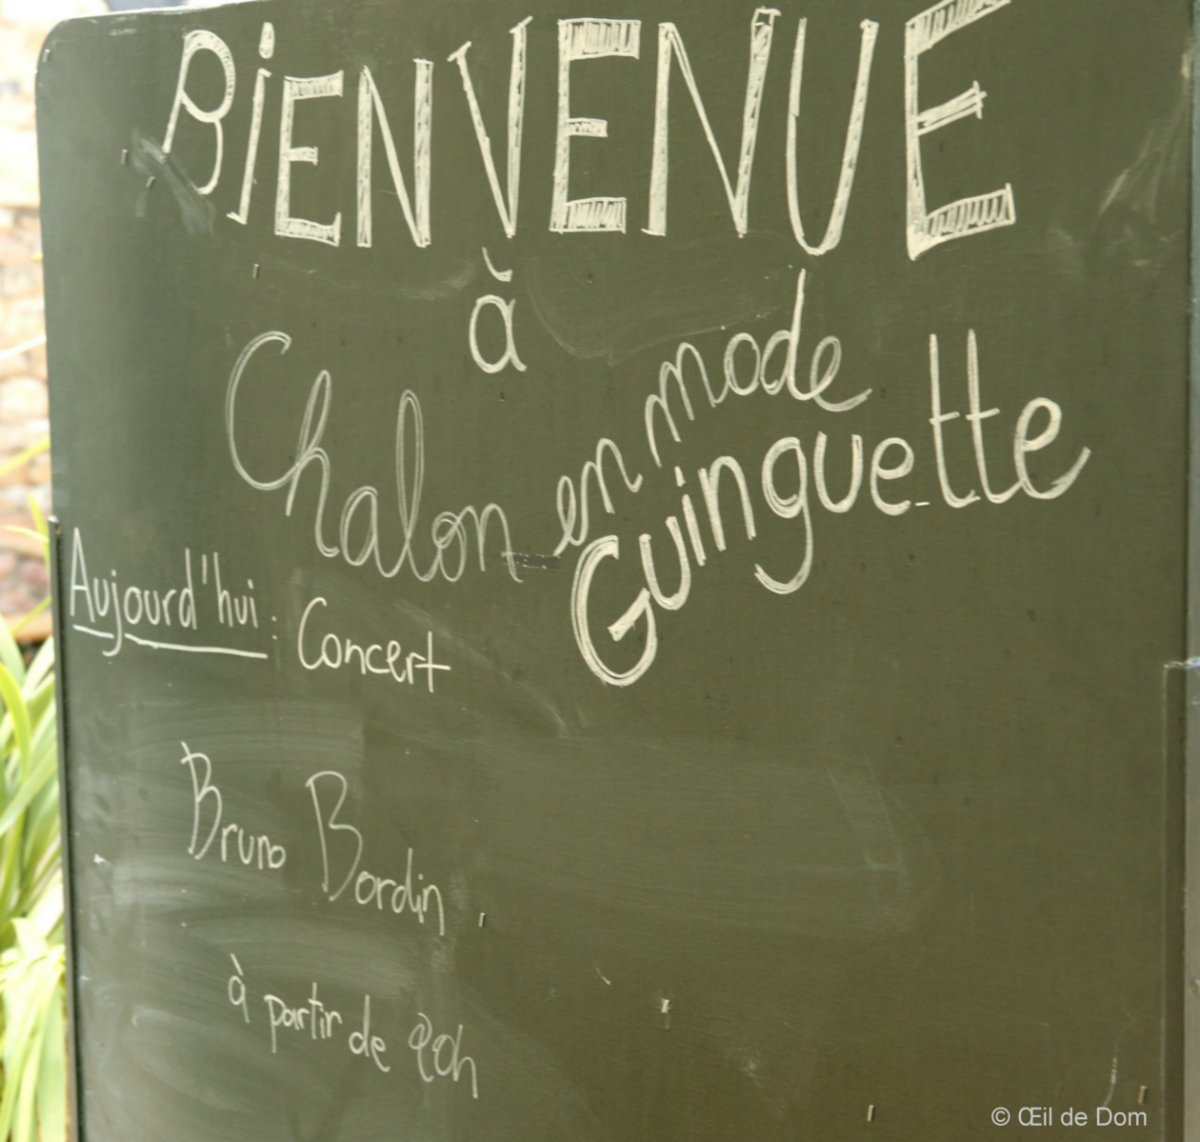 BiENVENUE
à
Chalon en mode
Guinguette
Aujourd'hui : Concert
Bruno Bordin
à partir de 20h
© Œil de Dom